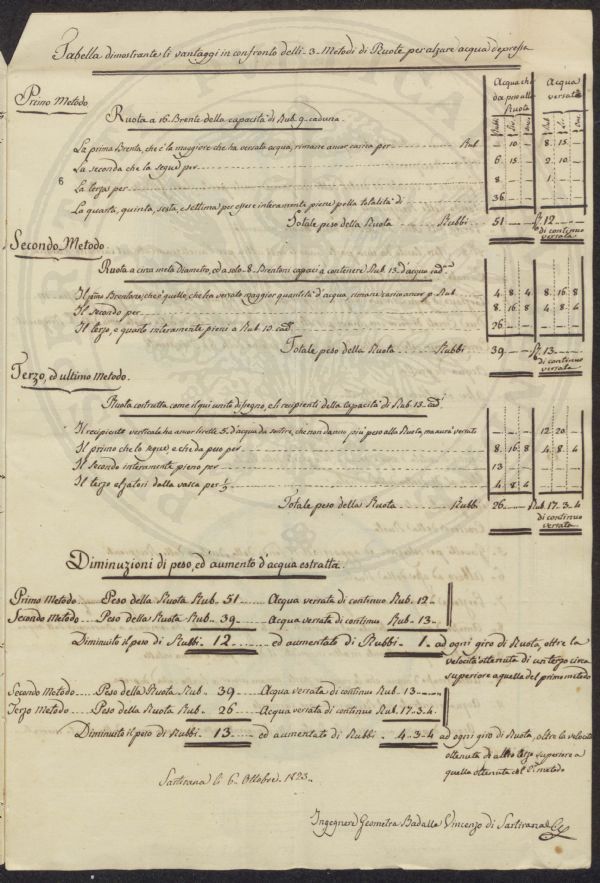 Tabella dimostrante li vantaggi in confronto delli 3 Metodi di Ruote per alzare acqua depressa
Acqua che da peso alla Ruota
Acqua versata
Primo Metodo
Ruota a 16. Brente della capacità di Rub. 9. caduna.
La prima Brenta, che è la maggiore che ha versato acqua, rimane ancor carica per Rub. 1 10 8 15
La seconda che la segue per 6 15 2 10
La terza per 8 1
La quarta, quinta, sesta, e settima per essere interamente piene per la totalità di 36
Totale peso della Ruota Rubbi 51 R. 12
di continuo versata
Secondo Metodo
Ruota a circa metà Diametro, ed a solo 8. Brentoni capaci a contenere Rub. 13. d'acqua cad.
Il primo Brentone, che è quello, che ha versato maggior quantità d'acqua, rimane carico ancor p. Rub. 4 8 4 8 16 8
Il secondo per 8 16 8 4 8 4
Il terzo, e quarto interamente pieni a Rub. 13 cad. 26
Totale peso della Ruota Rubbi 39 R. 13
di continuo versata
Terzo, ed ultimo Metodo.
Ruota costrutta come il qui unito disegno, e li recipienti della capacità di Rub. 13 cad.
Il recipiente verticale ha ancor livelle 5. d'acqua da sortire, che non danno più peso alla Ruota, ma avrà versati 12 20
Il primo che lo segue, e che da peso per 8 16 8 4 8 4
Il secondo interamente pieno per 13
Il terzo el'altri dalla vasca per 1/3 4 8 4
Totale peso della Ruota Rubbi 26 Rub. 17. 3. 4
di continuo versata
Diminuzioni di peso, ed aumento d'acqua estratta.
Primo Metodo Peso della Ruota Rub. 51 Acqua versata di continuo Rub. 12
Secondo Metodo Peso della Ruota Rub. 39 Acqua versata di continuo Rub. 13
Diminuito il peso di Rubbi 12 ed aumentato di Rubbi 1. ad ogni giro di Ruota, oltre la
velocità ottenuta di un terzo circa
superiore a quella del primo metodo
Secondo Metodo Peso della Ruota Rub. 39 Acqua versata di continuo Rub. 13
Terzo Metodo Peso della Ruota Rub. 26 Acqua versata di continuo Rub. 17. 3. 4.
Diminuito il peso di Rubbi 13 ed aumentato di Rubbi 4 3 4 ad ogni giro di Ruota, oltre la velocità
ottenuta di altro terzo superiore a
quella ottenuta col 2° metodo
Sartirana li 6. Ottobre 1823.
Ingegnere Geometra Badalla Vincenzo di Sartirana